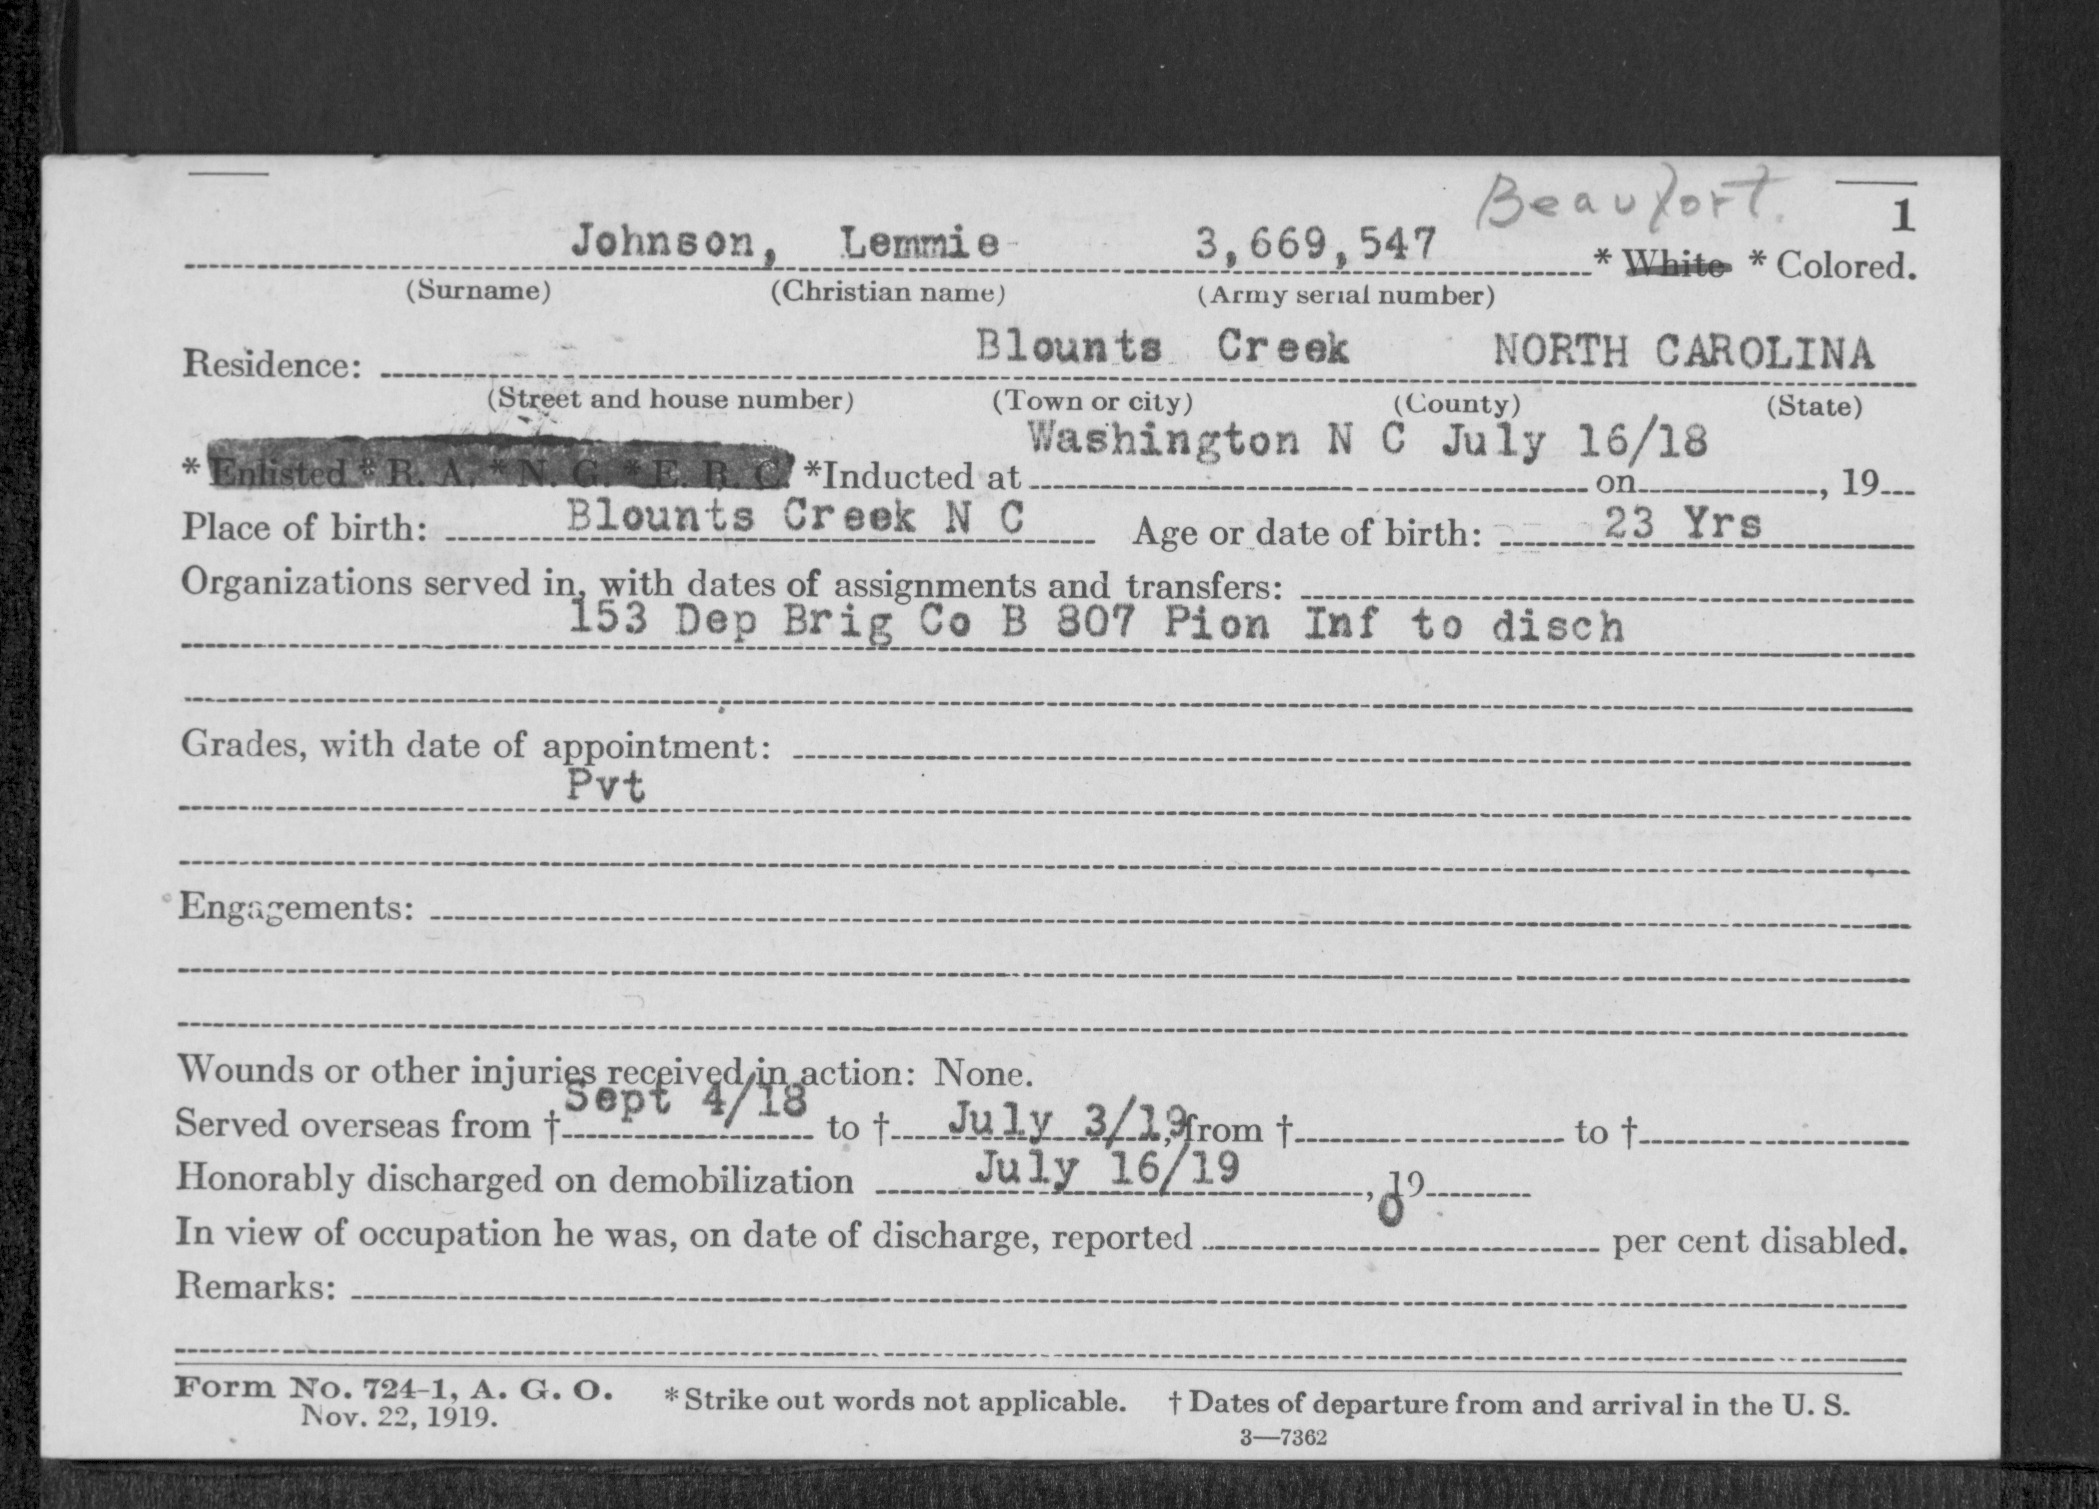 Beaufort.
1
Johnson, Lemmie 3,669,547 * White * Colored.
(Surname) (Christian name) (Army serial number)
Residence: Blounts Creek NORTH CAROLINA
(Street and house number) (Town or city) (County) (State)
Washington N C July 16/18
* Enlisted * R. A. * N. G. * E. R. C. *Inducted at on , 19
Place of birth: Blounts Creek N C Age or date of birth: 23 Yrs
Organizations served in, with dates of assignments and transfers:
153 Dep Brig Co B 807 Pion Inf to disch
Grades, with date of appointment:
Pvt
Engagements:
Wounds or other injuries received in action: None.
Served overseas from † Sept 4/18 to † July 3/19, from † to †
Honorably discharged on demobilization July 16/19, 19
In view of occupation he was, on date of discharge, reported 0 per cent disabled.
Remarks:
Form No. 724-1, A. G. O. * Strike out words not applicable. † Dates of departure from and arrival in the U. S.
Nov. 22, 1919.
3—7362